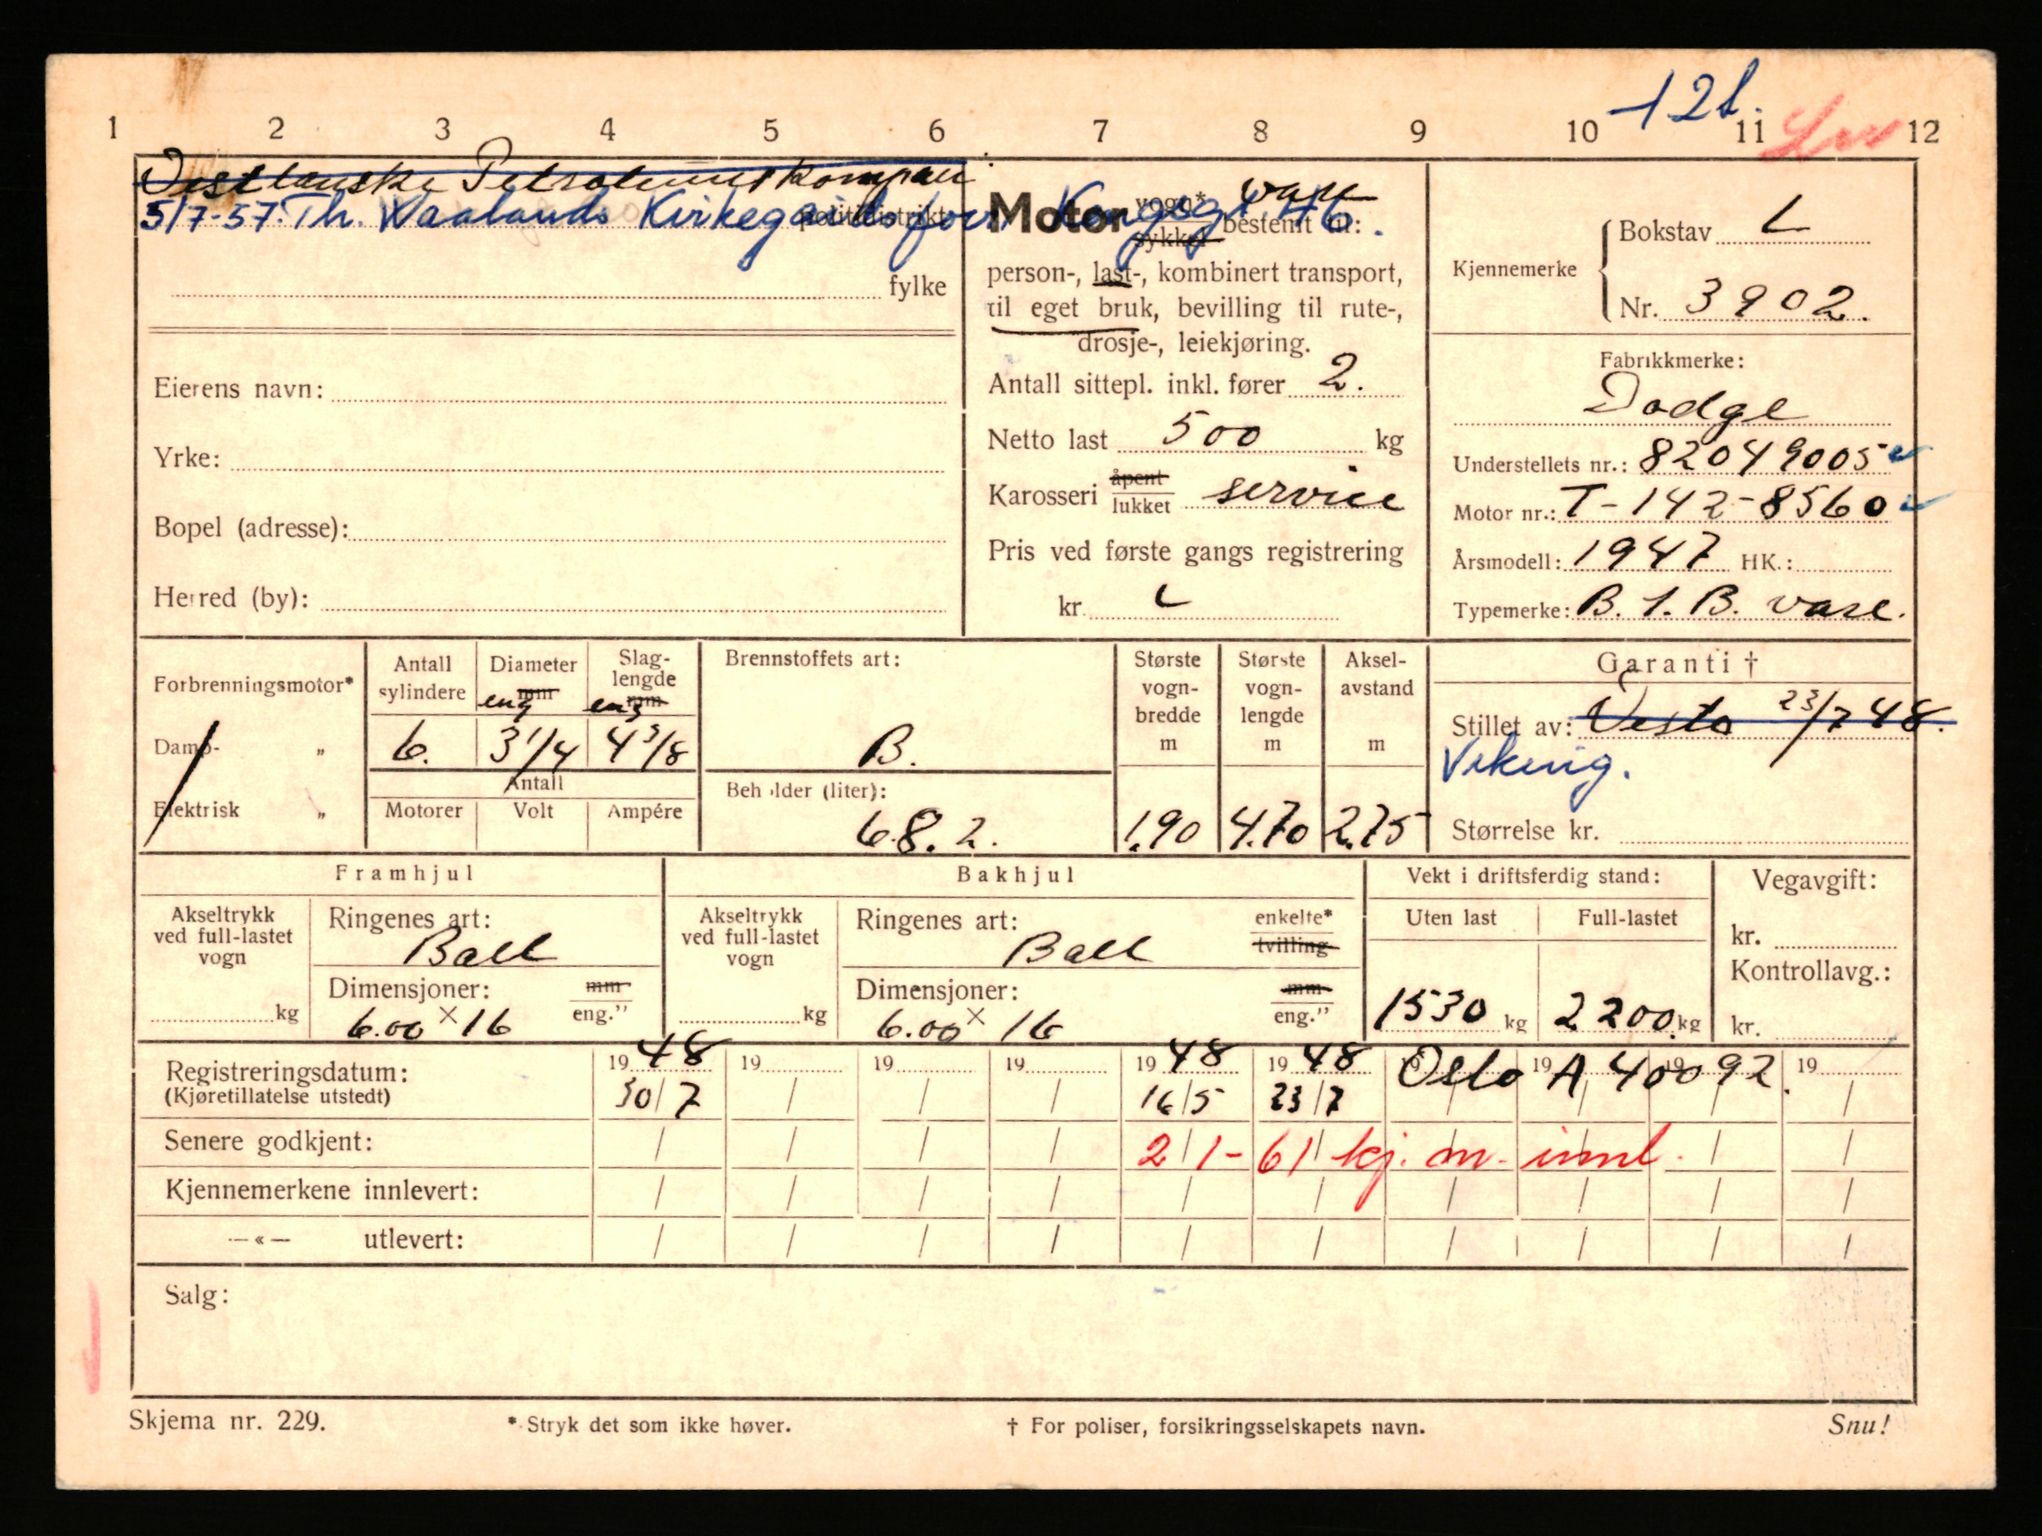 121.
1 2 3 4 5 6 7 8 9 10 11 12
Vestlanske Petroleumskompani
5/7-57. Th. Waalands Kirkegaards forr. Kongsgt. 46.
politidistrikt
fylke
Eierens navn:
Yrke:
Bopel (adresse):
Herred (by):
Motor vogn* sykkel bestemt til: vare
person-, last-, kombinert transport,
til eget bruk, bevilling til rute-,
drosje-, leiekjøring.
Antall sittepl. inkl. fører 2.
Netto last 500 kg
Karosseri åpent lukket service
Pris ved første gangs registrering
kr.
Kjennemerke
Bokstav L
Nr. 3902.
Fabrikkmerke:
Dodge
Understellets nr.: 82049005
Motor nr.: T-142-8560
Årsmodell: 1947 HK.:
Typemerke: B.1.B. vare.
Forbrenningsmotor*
Damp- „
Elektrisk „
Antall sylindere 6.
Diameter mm eng 3 1/4
Slaglengde mm eng 4 3/8
Antall
Motorer Volt Ampére
Brennstoffets art:
B.
Beholder (liter):
68.2.
Største vognbredde m 1.90
Største vognlengde m 4.70
Akselavstand m 2.75
Garanti †
Stillet av: Vesta 23/7 48.
Viking.
Størrelse kr.
Framhjul
Akseltrykk ved full-lastet vogn
kg
Ringenes art:
Ball
Dimensjoner: mm eng."
6.00 x 16
Bakhjul
Akseltrykk ved full-lastet vogn
kg
Ringenes art: enkelte* tvilling
Ball
Dimensjoner: mm eng."
6.00 x 16
Vekt i driftsferdig stand:
Uten last Full-lastet
1530 kg 2200 kg
Vegavgift:
kr.
Kontrollavg.:
kr.
Registreringsdatum: 1948 19 19 19 1948 1948 Oslo A 40092. 19
(Kjøretillatelse utstedt) 30/7 / / / 16/5 23/7 / / / /
Senere godkjent: / / / / 2/1-61 kj. m. innl. / /
Kjennemerkene innlevert: / / / / / / / / / /
—«— utlevert: / / / / / / / / / /
Salg:
Skjema nr. 229.
* Stryk det som ikke høver.
† For poliser, forsikringsselskapets navn.
Snu!